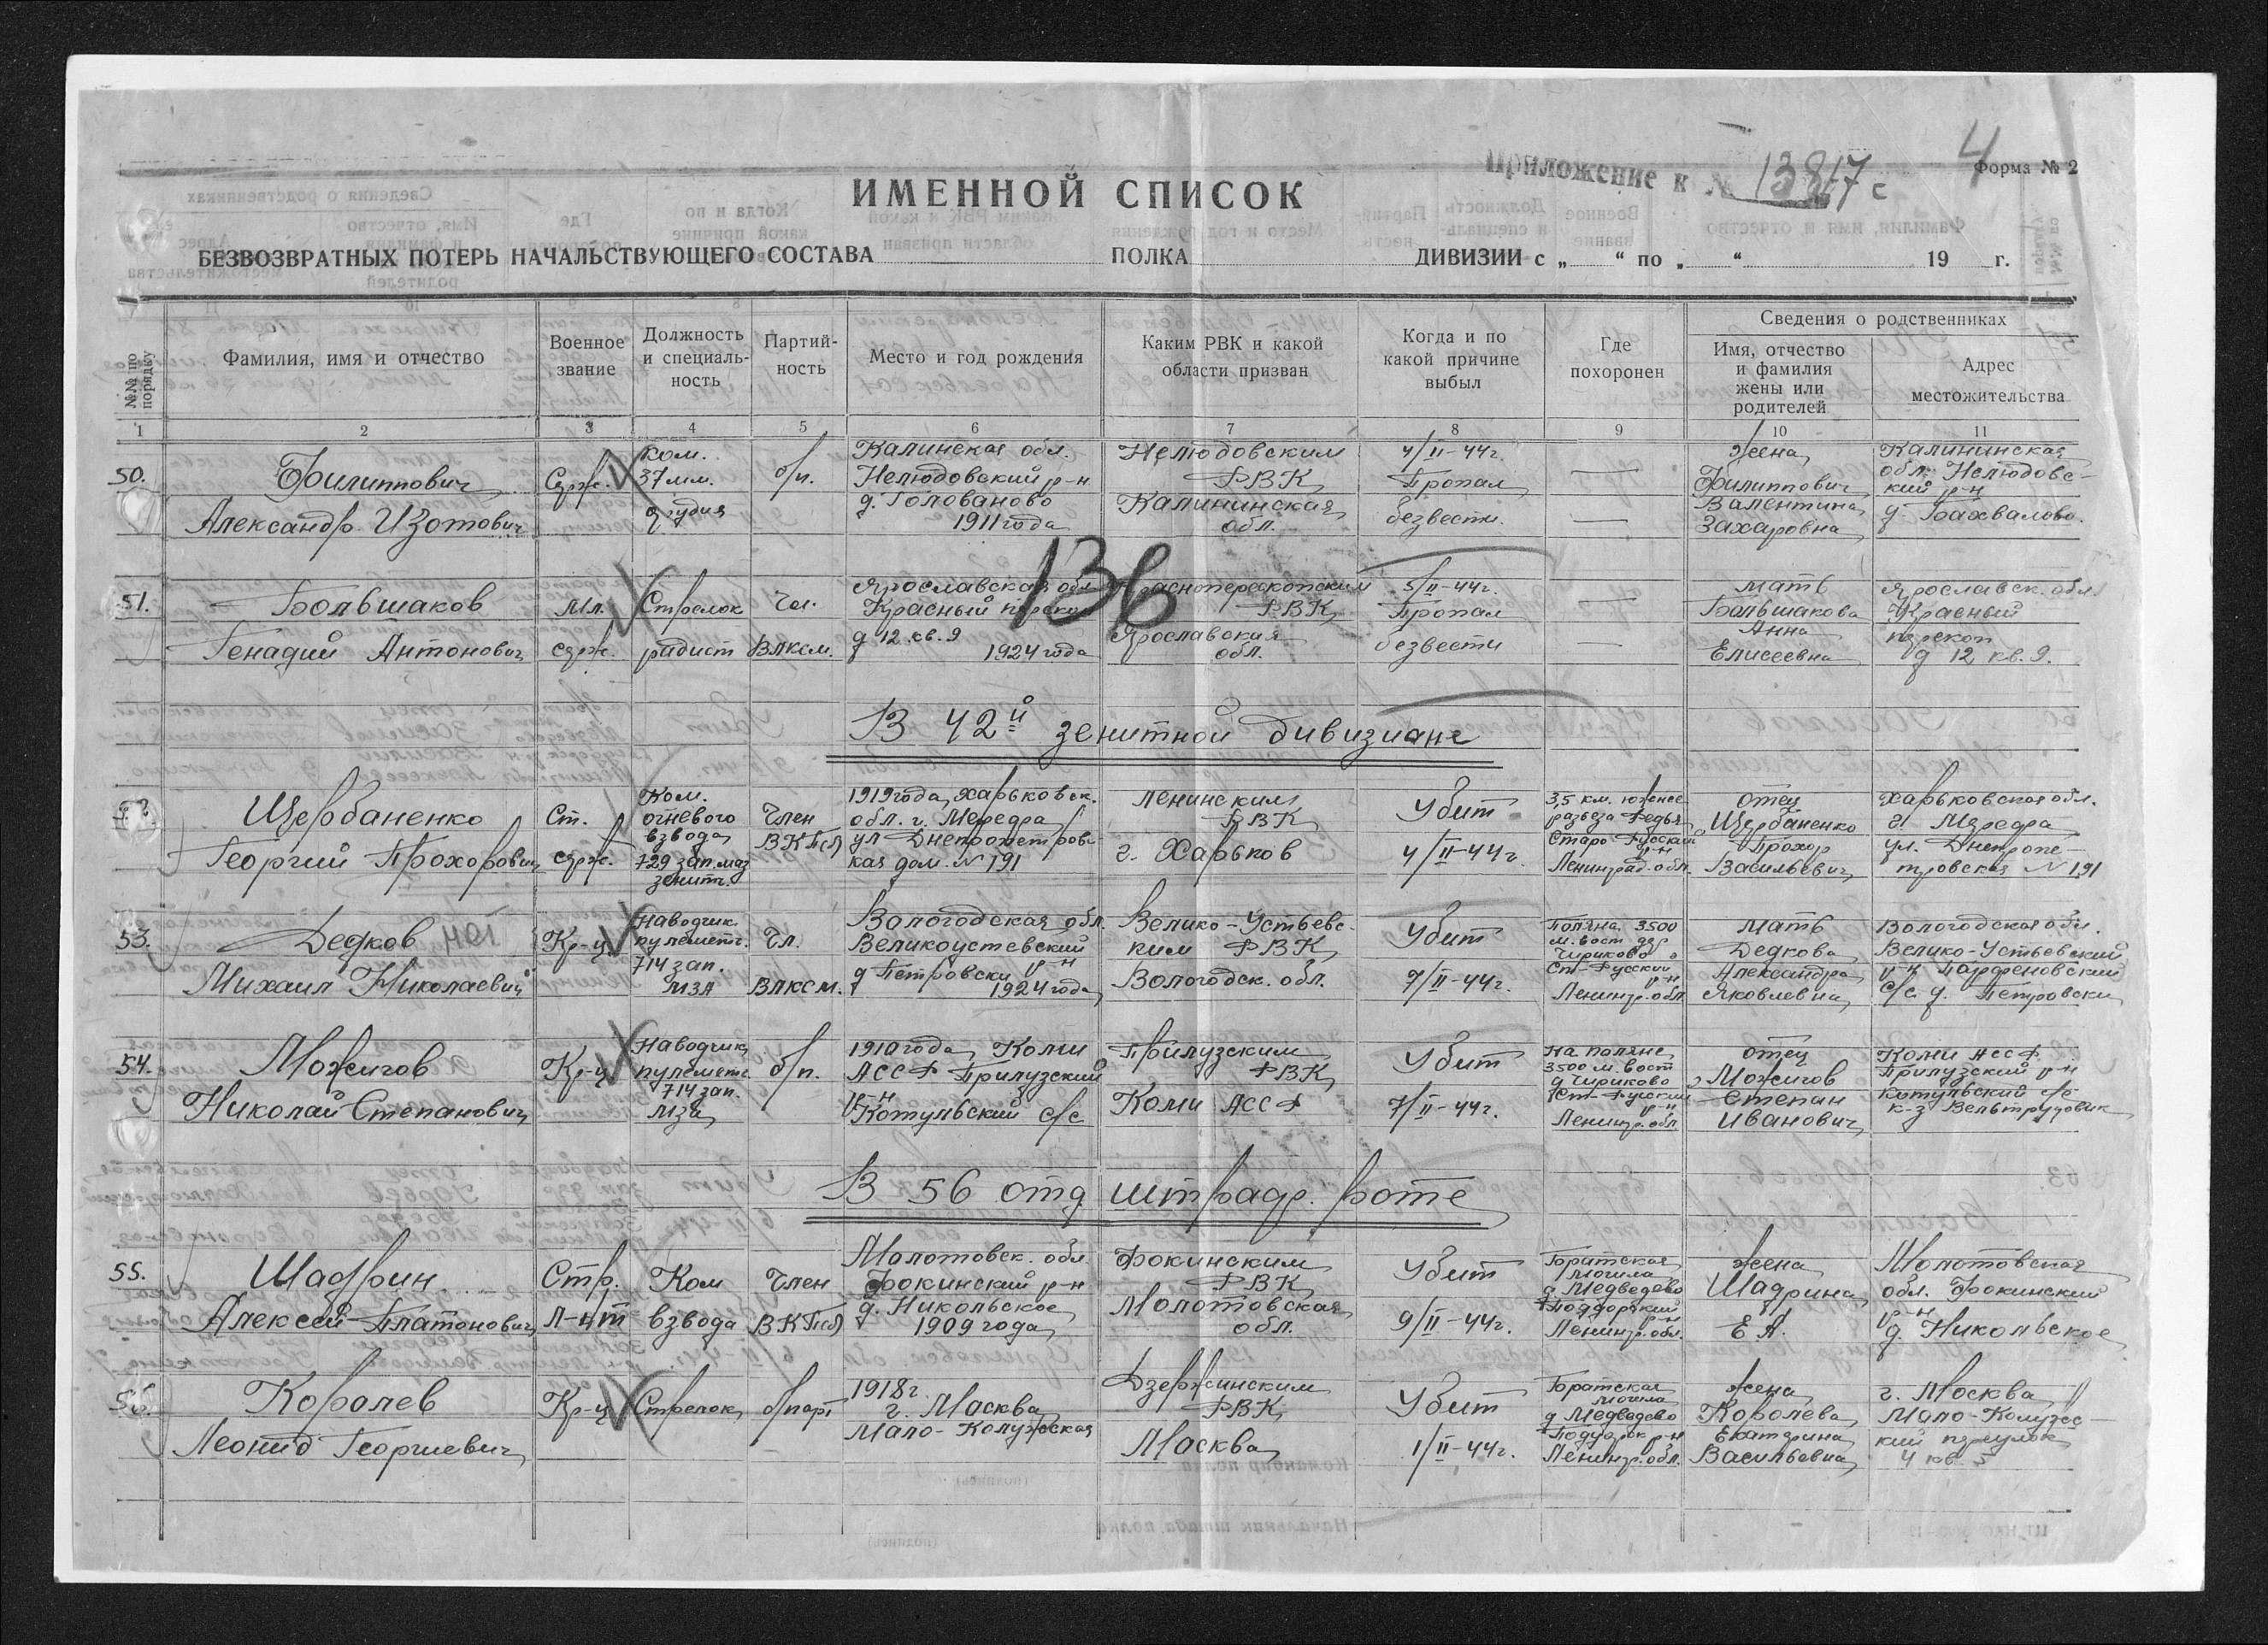 Приложение к № 13817с
4
Форма № 2
ИМЕННОЙ СПИСОК
БЕЗВОЗВРАТНЫХ ПОТЕРЬ НАЧАЛЬСТВУЮЩЕГО СОСТАВА ПОЛКА ДИВИЗИИ с „ “ по „ “ 19 г.
№№ по порядку
Фамилия, имя и отчество
Военное звание
Должность и специаль-ность
Партий-ность
Место и год рождения
Каким РВК и какой области призван
Когда и по какой причине выбыл
Где похоронен
Сведения о родственниках
Имя, отчество и фамилия жены или родителей
Адрес местожительства
1 2 3 4 5 6 7 8 9 10 11
50.
Филиппович
Александр Изотович
Серж.
Ком.
37 мм.
орудия
б/п.
Калинская обл.
Нелюдовский р-н
д. Голованово
1911 года
Нелюдовским
РВК
Калининская
обл.
4/II-44г.
Пропал
безвести.
Жена
Филиппович
Валентина
Захаровна
Калининская
обл. Нелюдовс-
кий р-н
д. Бахвалово.
136
51.
Большаков
Генадий Антонович
Мл.
серж.
Стрелок
радист
Чл.
ВЛКСМ.
Ярославская обл.
Красный перекоп
д 12 кв. 9
1924 года
Красноперекопским
РВК
Ярославская
обл.
5/II-44г.
Пропал
безвести
Мать
Большакова
Анна
Елисеевна
Ярославск. обл.
Красный
перекоп
д 12 кв. 9.
В 42й зенитной дивизионе
52.
Щербаненко
Георгий Прохорович
Ст.
серж.
Ком.
огневого
взвода
729 зап. маз
зенит.
Член
ВКП(б)
1919 года, Харьковск.
обл. г. Мерефа
ул Днепропетровс-
кая дом. № 191
Ленинским
РВК
г. Харьков
Убит
4/II-44г.
3,5 км. южнее
разъезда Федья
Старо-Русский
р-н
Ленинград. обл.
отец
Щербаненко
Прохор
Васильевич
Харьковская обл.
г. Мерефа
ул. Днепропе-
тровская № 191
53.
Дедков
Михаил Николаевич
Кр-ц
Наводчик
пулеметч.
714 зап.
МЗА
Чл.
ВЛКСМ.
Вологодская обл.
Великоустевский
р-н
д Петровски
1924 года
Велико-Устьевс-
ким РВК
Вологодск. обл.
Убит
7/II-44г.
Поляна 3500
м. вост дер
Чириково
Ст-Русский
р-н
Ленингр. обл
Мать
Дедкова
Александра
Яковлевна
Вологодская обл.
Велико-Устьевский
р-н Парфеновский
с/с д. Петровски
54.
Можигов
Николай Степанович
Кр-ц
Наводчик
пулеметч.
714 зап.
МЗА
б/п.
1910 года Коми
АССР Прилузский
р-н
Котульский с/с
Прилузским
РВК
Коми АССР
Убит
7/II-44г.
На поляне
3500 м. вост
д Чириково
Ст-Русский
р-н
Ленингр. обл
отец
Можигов
Степан
Иванович
Коми АССР
Прилузский р-н
Котульский с/с
к-з Вельтрудовик
В 56 отд штрафр. роте
55.
Шадрин
Алексей Платонович
Стр.
Л-нт
Ком
взвода
Член
ВКП(б)
Молотовск. обл
Фокинский р-н
д. Никольское
1909 года
Фокинским
РВК
Молотовская
обл.
Убит
9/II-44г.
Братская
могила
д Медведево
Поддорский
р-н
Ленингр. обл.
Жена
Шадрина
Е А.
Молотовская
обл. Фокинский
р-н
д. Никольское
56.
Королев
Леонид Георгиевич
Кр-ц
Стрелок
б/парт
1918 г
г. Москва
Мало-Калужская
Дзержинским
РВК
Москва
Убит
1/II-44г.
Братская
могила
д Медведево
р-н
Ленингр. обл.
Жена
Королева
Екатерина
Васильевна
г. Москва
Мало-Калужс-
кий переулок
4 кв.